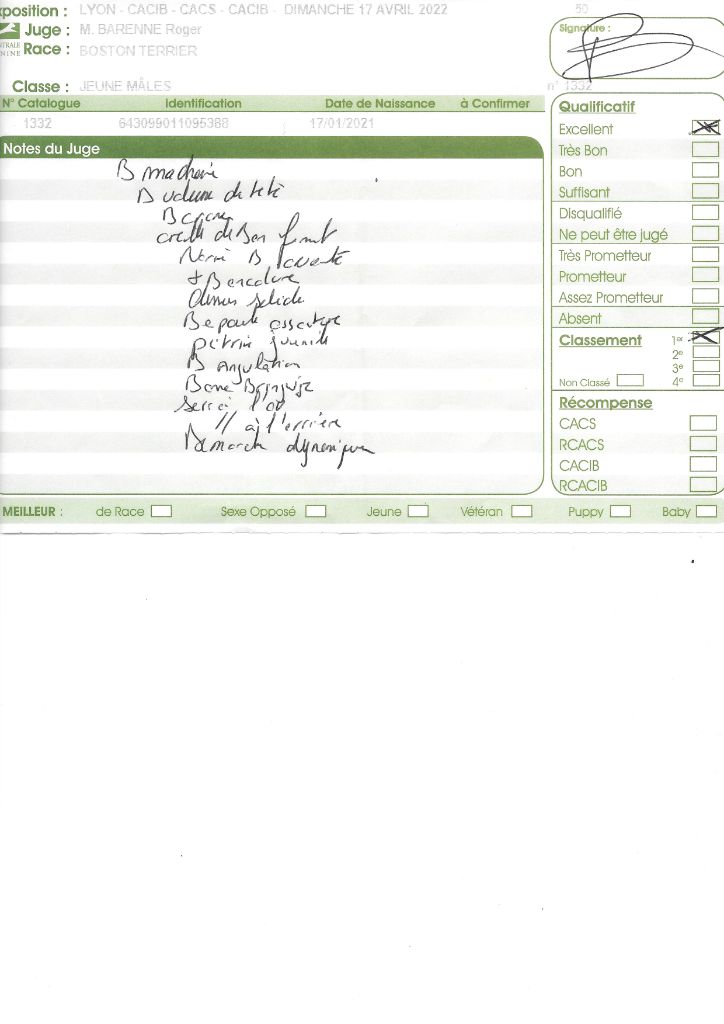 xposition : LYON - CACIB - CACS - CACIB - DIMANCHE 17 AVRIL 2022 50
Juge : M. BARENNE Roger
NTRALE
NINE
Race : BOSTON TERRIER
Signature :
Classe : JEUNE MÂLES n° 1332
N° Catalogue Identification Date de Naissance à Confirmer
1332 643099011095388 17/01/2021
Notes du Juge
B machoire
B volume de tête
B crane
oreille de Bon format
B
+ B encolure
Dessus solide
B epaule ossature
poitrine juvenile
B angulation
Bone
serré
// à l'arrière
Demarche dynamique
Qualificatif
Excellent
Très Bon
Bon
Suffisant
Disqualifié
Ne peut être jugé
Très Prometteur
Prometteur
Assez Prometteur
Absent
Classement 1er
2e
3e
Non Classé 4e
Récompense
CACS
RCACS
CACIB
RCACIB
MEILLEUR : de Race Sexe Opposé Jeune Vétéran Puppy Baby